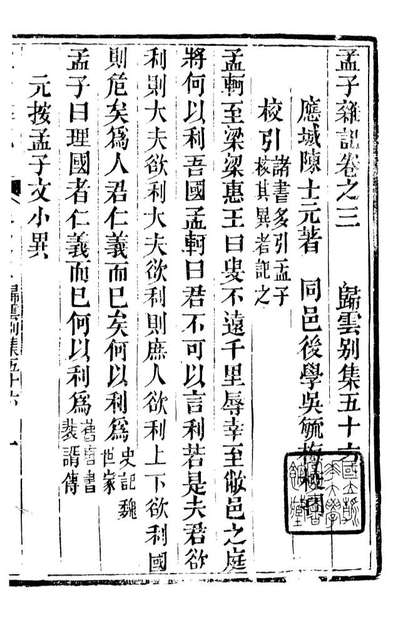 孟子雜記卷之三 歸雲別集五十六
應城陳士元著 同邑後學吳毓梅
校引諸書多引孟子
校其異者記之
孟軻至梁梁惠王曰叟不遠千里辱幸至敝邑之庭
將何以利吾國孟軻曰君不可以言利若是夫君欲
利則大夫欲利大夫欲利則庶人欲利上下欲利國
則危矣為人君仁義而已矣何以利為史記魏世家
孟子曰理國者仁義而已何以利為舊唐書裴諝傳
元按孟子文小異
歸雲別集五十六 一